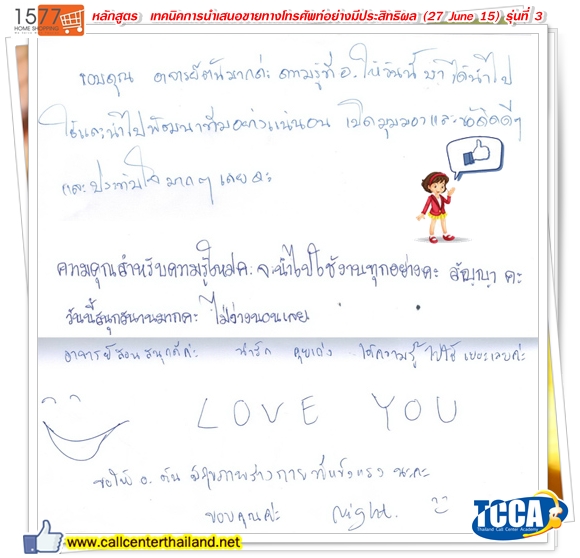 1577
HOME SHOPPING
หลักสูตร เทคนิคการนำเสนอขายทางโทรศัพท์อย่างมีประสิทธิผล (27 June 15) รุ่นที่ 3
ขอบคุณ อาจารย์ต้นมากค่ะ ความรู้ที่ อ. ให้วันนี้ ได้นำไป
ใช้และนำไปพัฒนาทีมอย่างแน่นอน เปิดมุมมองและข้อคิดดีๆ
และประทับใจมากๆ เลยค่ะ
สำหรับความรู้ใหม่ค่ะ จะนำไปใช้งานทุกอย่างคะ สัญญา คะ
วันนี้สนุกสนานมากคะ ไม่ง่วงนอนเลย
อาจารย์สอนสนุกดีค่ะ น่ารัก คุยเก่ง ได้ความรู้ไปใช้เยอะเลยค่ะ
LOVE YOU
ขอให้ อ. ต้น มีสุขภาพร่างกายที่แข็งแรง นะคะ
ขอบคุณค่ะ Night.
TCCA
Thailand Call Center Academy
www.callcenterthailand.net